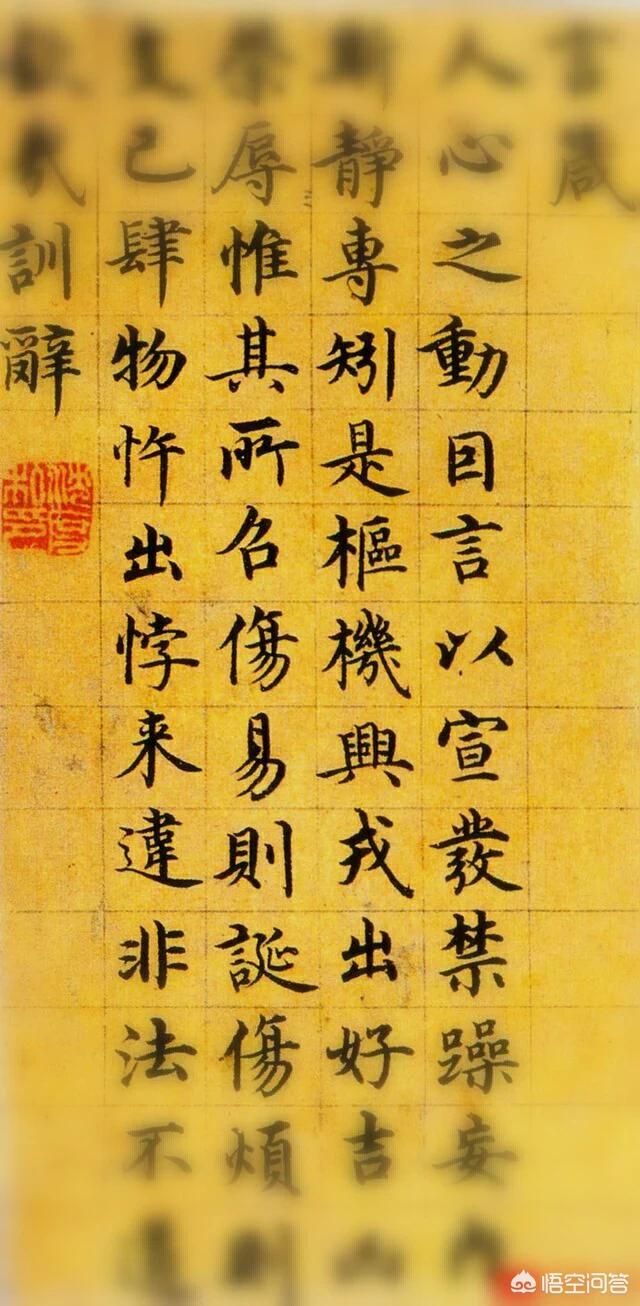 言箴
人心之動因言以宣發禁躁妄內
斯靜專矧是樞機興戎出好吉凶
榮辱惟其所召傷易則誕傷煩則
支己肆物忤出悖来違非法不道
欽哉訓辭
悟空问答